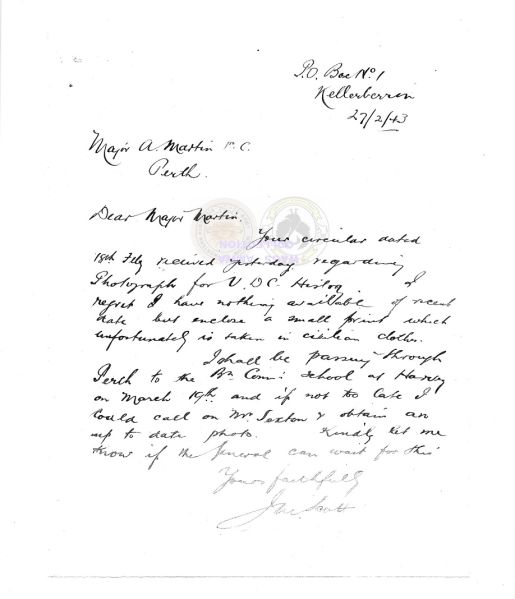 P.O. Box No 1
Kellerberrin
27/2/43
Major A. Martin V.C.
Perth.
Dear Major Martin.
Your circular dated
18th Feby recieved yesterday regarding
Photographs for V.D.C. History. I
regret I have nothing available of recent
date but enclose a small print which
unfortunately is taken in civilian clothes.
I shall be passing through
Perth to the Bn Comm: School at Harvey
on March 19th and if not too late I
could call on Mr. Sexton & obtain an
up to date photo. Kindly let me
know if the General can wait for this
Yours faithfully
Scott